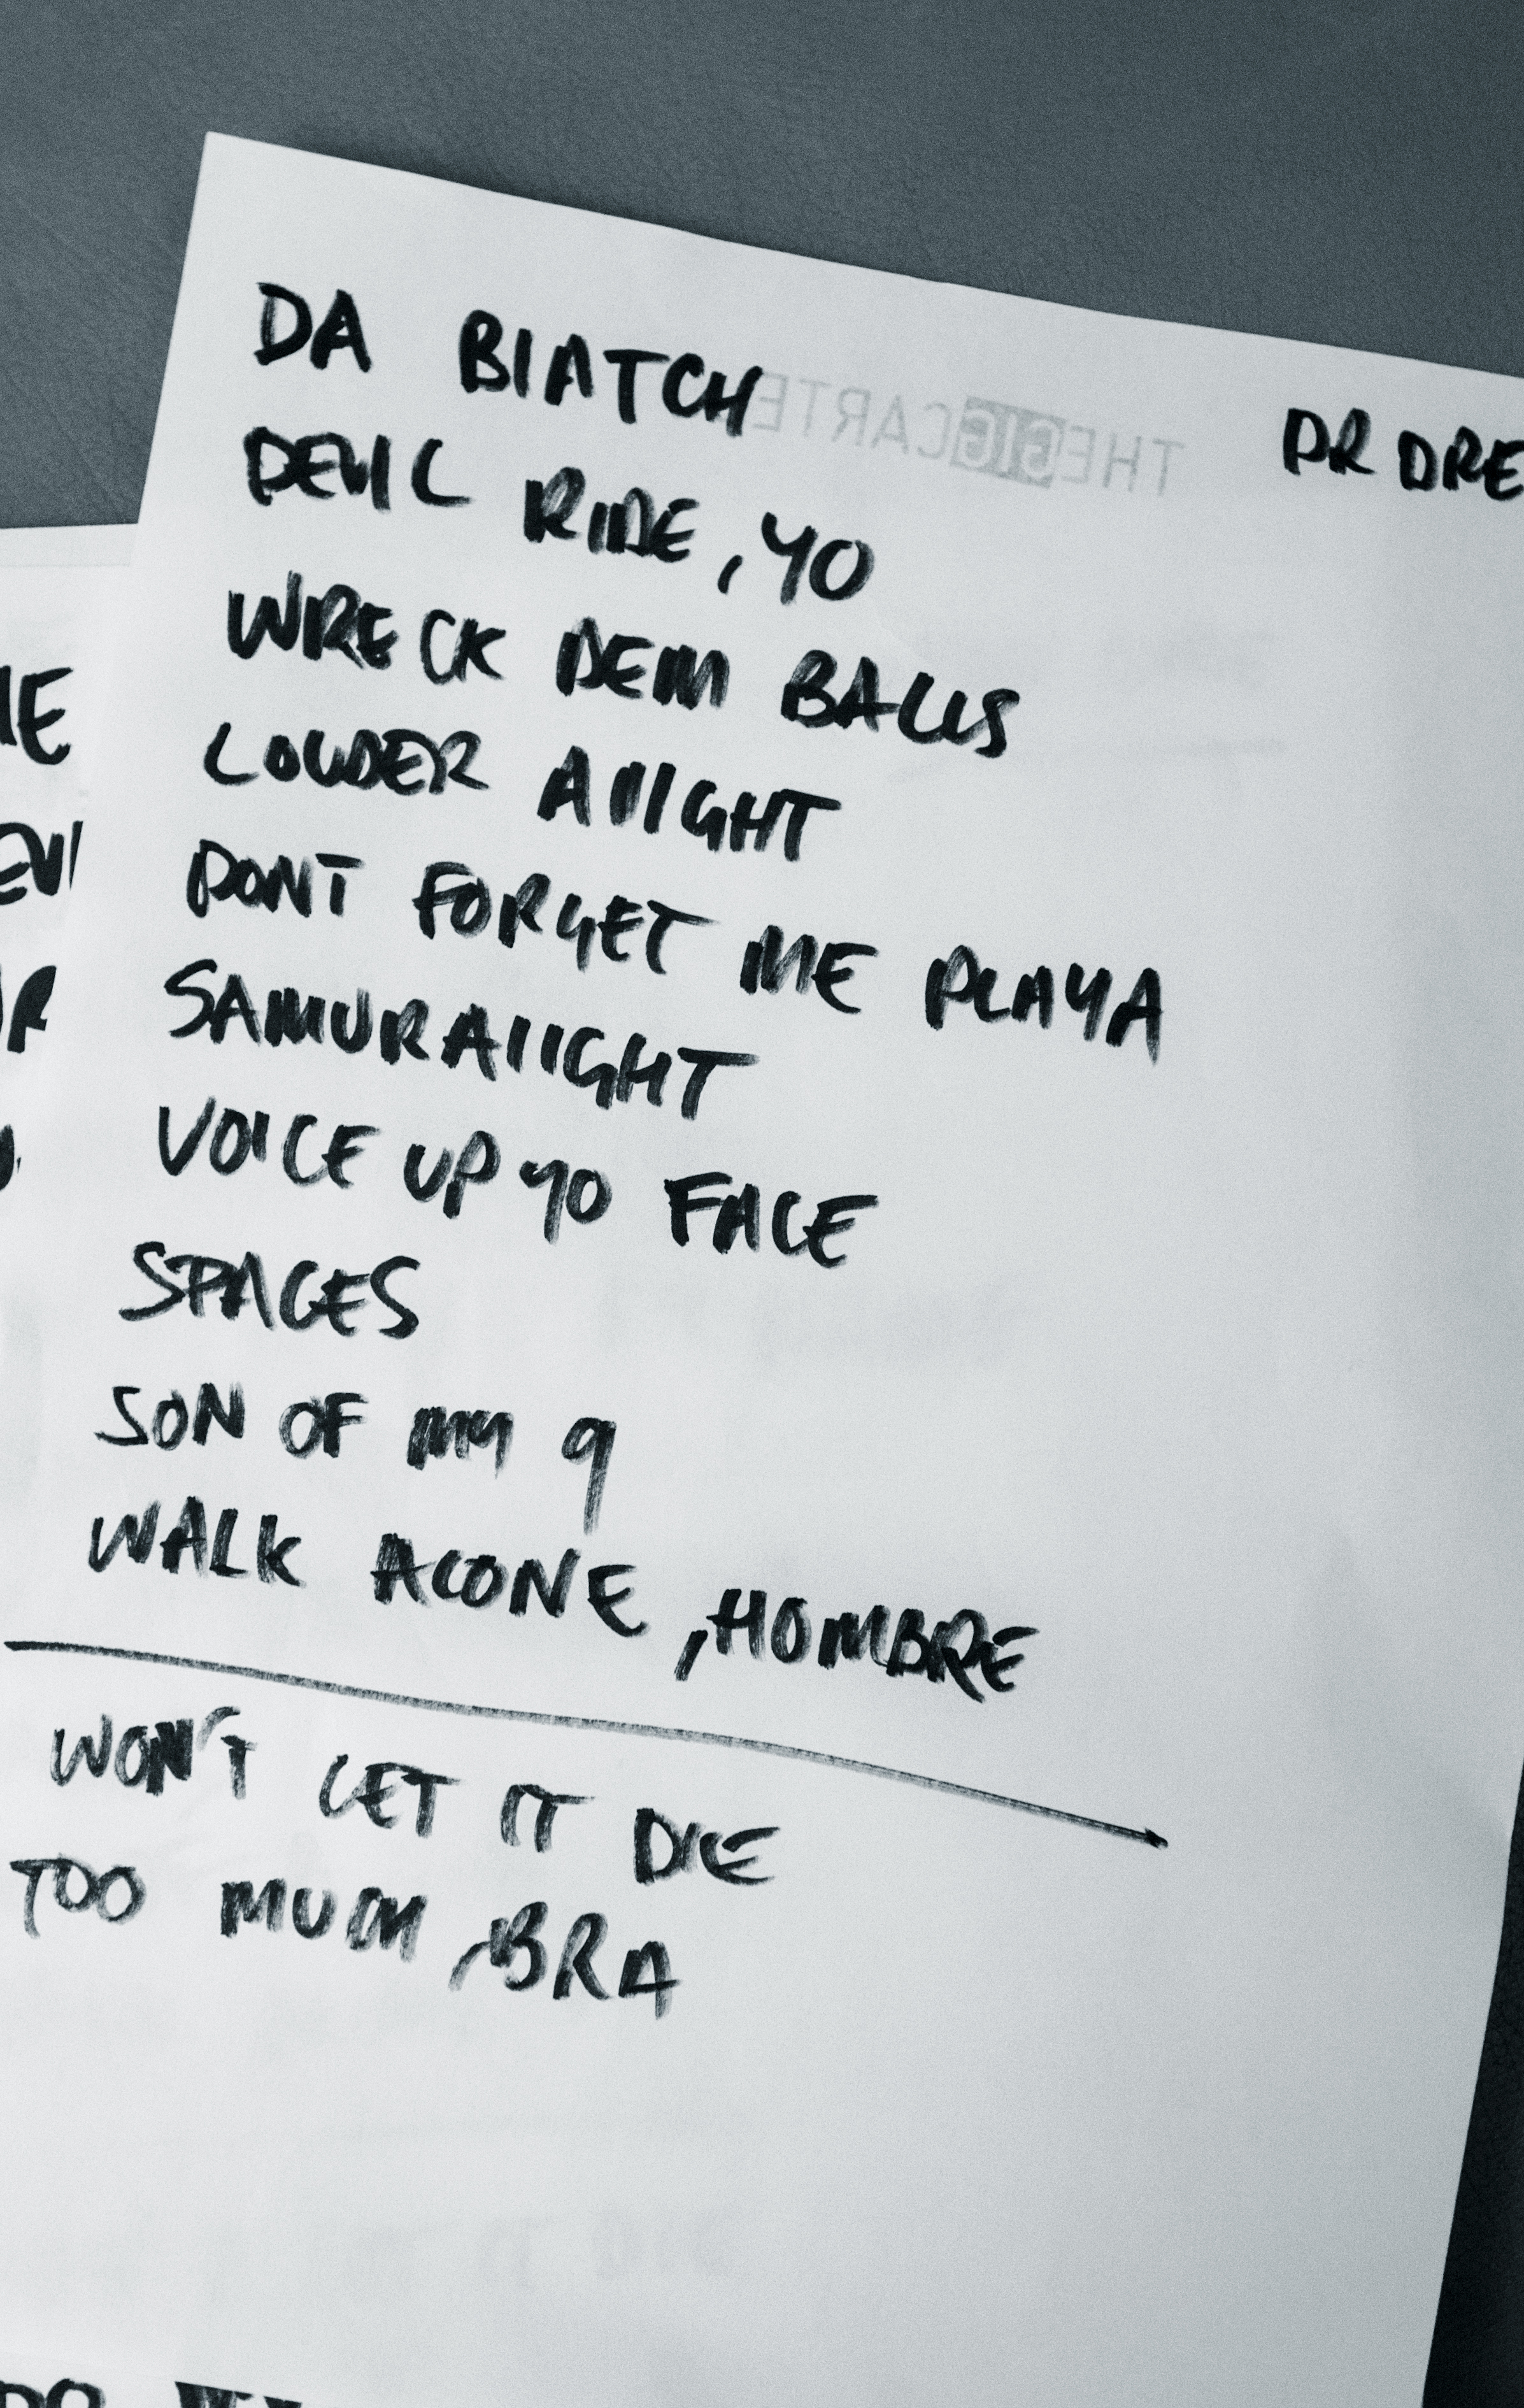 DA BIATCH
THEGIGCARTE
DR DRE
DEVIL RIDE, YO
WRECK DEM BALLS
LOUDER AIIIGHT
DONT FORGET ME PLAYA
SAMURAIIIGHT
VOICE UP YO FACE
SPACES
SON OF MY 9
WALK ALONE, HOMBRE
WON'T LET IT DIE
TOO MUCH, BRA